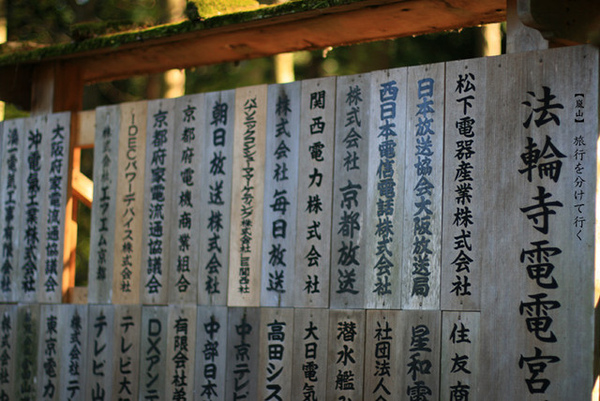 法輪寺電電宮
【嵐山】旅行を分けて行く
松下電器産業株式会社
日本放送協会大阪放送局
西日本電信電話株式会社
株式会社 京都放送
関西電力株式会社
株式会社 毎日放送
パナソニックコンシューマーマーケティング株式会社
朝日放送株式会社
京都府電機商業組合
京都府家電流通協議会
IDECパワーデバイス株式会社
株式会社 エフエム京都
大阪府家電流通協議会
沖電気工業株式会社
電気工事有限会社
住友商
星和電
社団法人
潜水艦
大日電気
高田シス
中京テレビ
中部日本
有限会社
DXアンテ
テレビ大
テレビ山
株式会社
東京電力
株式会社